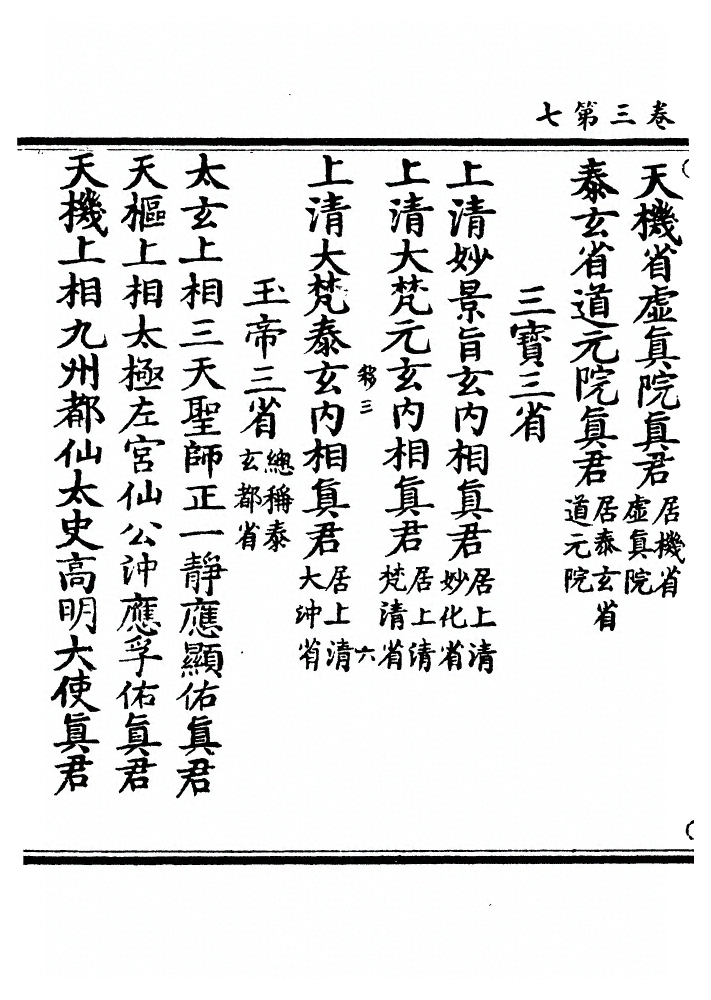 卷三第七
天機省虛眞院眞君居機省虛眞院
泰玄省道元院眞君居泰玄省道元院
三寶三省
上清妙景旨玄内相眞君居上清妙化省
上清大梵元玄内相眞君居上清梵清省
移三 六
上清大梵泰玄内相眞君居上清大沖省
玉帝三省總稱泰玄都省
太玄上相三天聖師正一靜應顯佑眞君
天樞上相太極左宮仙公沖應孚佑眞君
天機上相九州都仙太史高明大使眞君